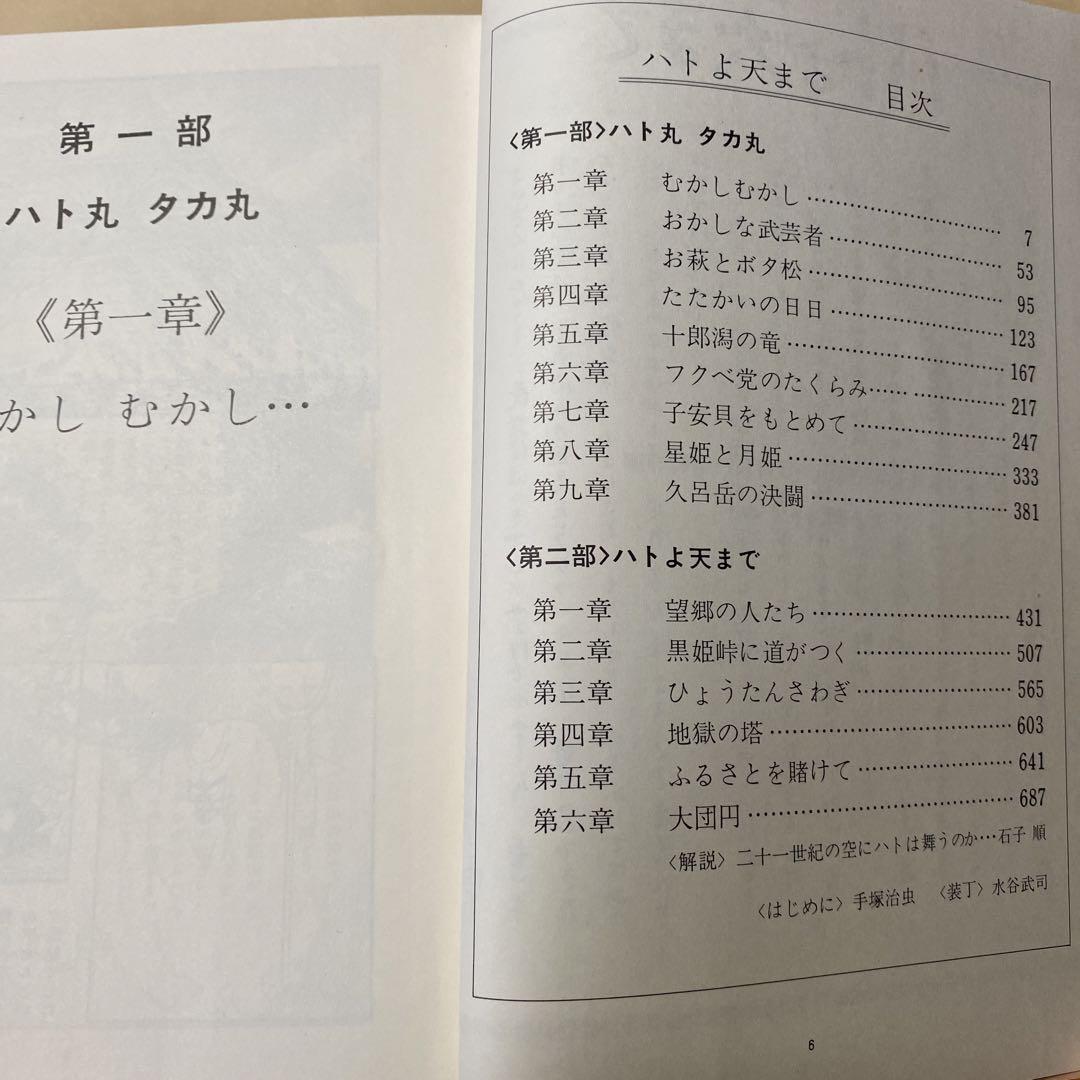 第一部
ハト丸 タカ丸
《第一章》
かし むかし…
ハトよ天まで 目次
〈第一部〉ハト丸 タカ丸
第一章 むかしむかし………………… 7
第二章 おかしな武芸者……………… 53
第三章 お萩とボタ松………………… 95
第四章 たたかいの日日……………… 123
第五章 十郎潟の竜…………………… 167
第六章 フクベ党のたくらみ………… 217
第七章 子安貝をもとめて…………… 247
第八章 星姫と月姫…………………… 333
第九章 久呂岳の決闘………………… 381
〈第二部〉ハトよ天まで
第一章 望郷の人たち………………… 431
第二章 黒姫峠に道がつく…………… 507
第三章 ひょうたんさわぎ…………… 565
第四章 地獄の塔……………………… 603
第五章 ふるさとを賭けて…………… 641
第六章 大団円………………………… 687
〈解説〉二十一世紀の空にハトは舞うのか…石子 順
〈はじめに〉手塚治虫 〈装丁〉水谷武司
6